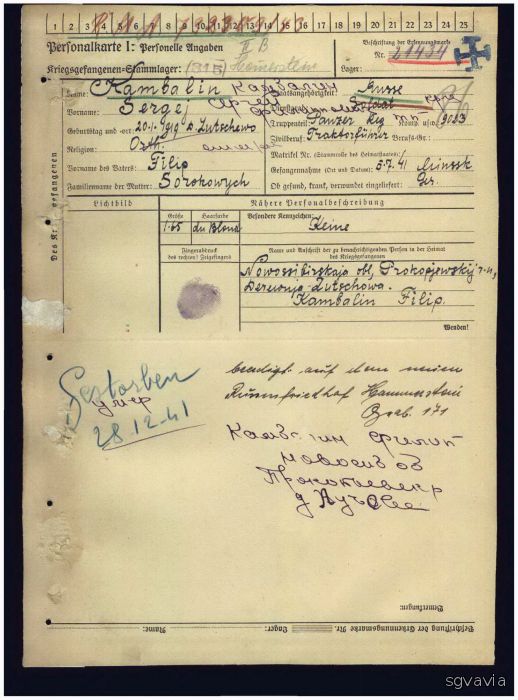 1 2 3 4 5 6 7 8 9 10 11 12 13 14 15 16 17 18 19 20 21 22 23 24 25
Personalkarte I: Personelle Angaben
II B
Beschriftung der Erkennungsmarke
Kriegsgefangenen-Stammlager: (315) Hammerstein
Nr. 21454
Lager:
Name: Kambalin Камбалин
Staatsangehörigkeit: Russe
Vorname: Sergej Сергей
Dienstgrad: Soldat
Geburtstag und -ort: 20.1.1919 d. Lutschewo
Truppenteil: Panzer Reg Komp. usw.: 9083
Religion: Orth.
Zivilberuf: Traktorführer Berufs-Gr.:
Matrikel Nr. (Stammrolle des Heimatstaates):
Vorname des Vaters: Filip
Gefangennahme (Ort und Datum): 5.7.41 Minssk
Familienname der Mutter: Sorokowych
Ob gesund, krank, verwundet eingeliefert: Ges.
Des Kriegsgefangenen
Lichtbild
Nähere Personalbeschreibung
Größe Haarfarbe Besondere Kennzeichen:
1.65 du Blond Keine
Fingerabdruck
des rechten! Zeigefingers
Name und Anschrift der zu benachrichtigenden Person in der Heimat
des Kriegsgefangenen
Nowossibirskaja obl, Prokopjewskij r-n,
Derewnja-Lutschowa.
Kambalin Filip.
Wenden!
Gestorben
умер
28.12.41
beerdigt auf dem neuen
Russenfriedhof Hammerstein
Grab. 171
Камбалин Филип
Новосиб об
Прокопьевск р
д Лучёве
Bemerkungen:
Beschriftung der Erkennungsmarke Nr. Lager: Name:
sgvavia